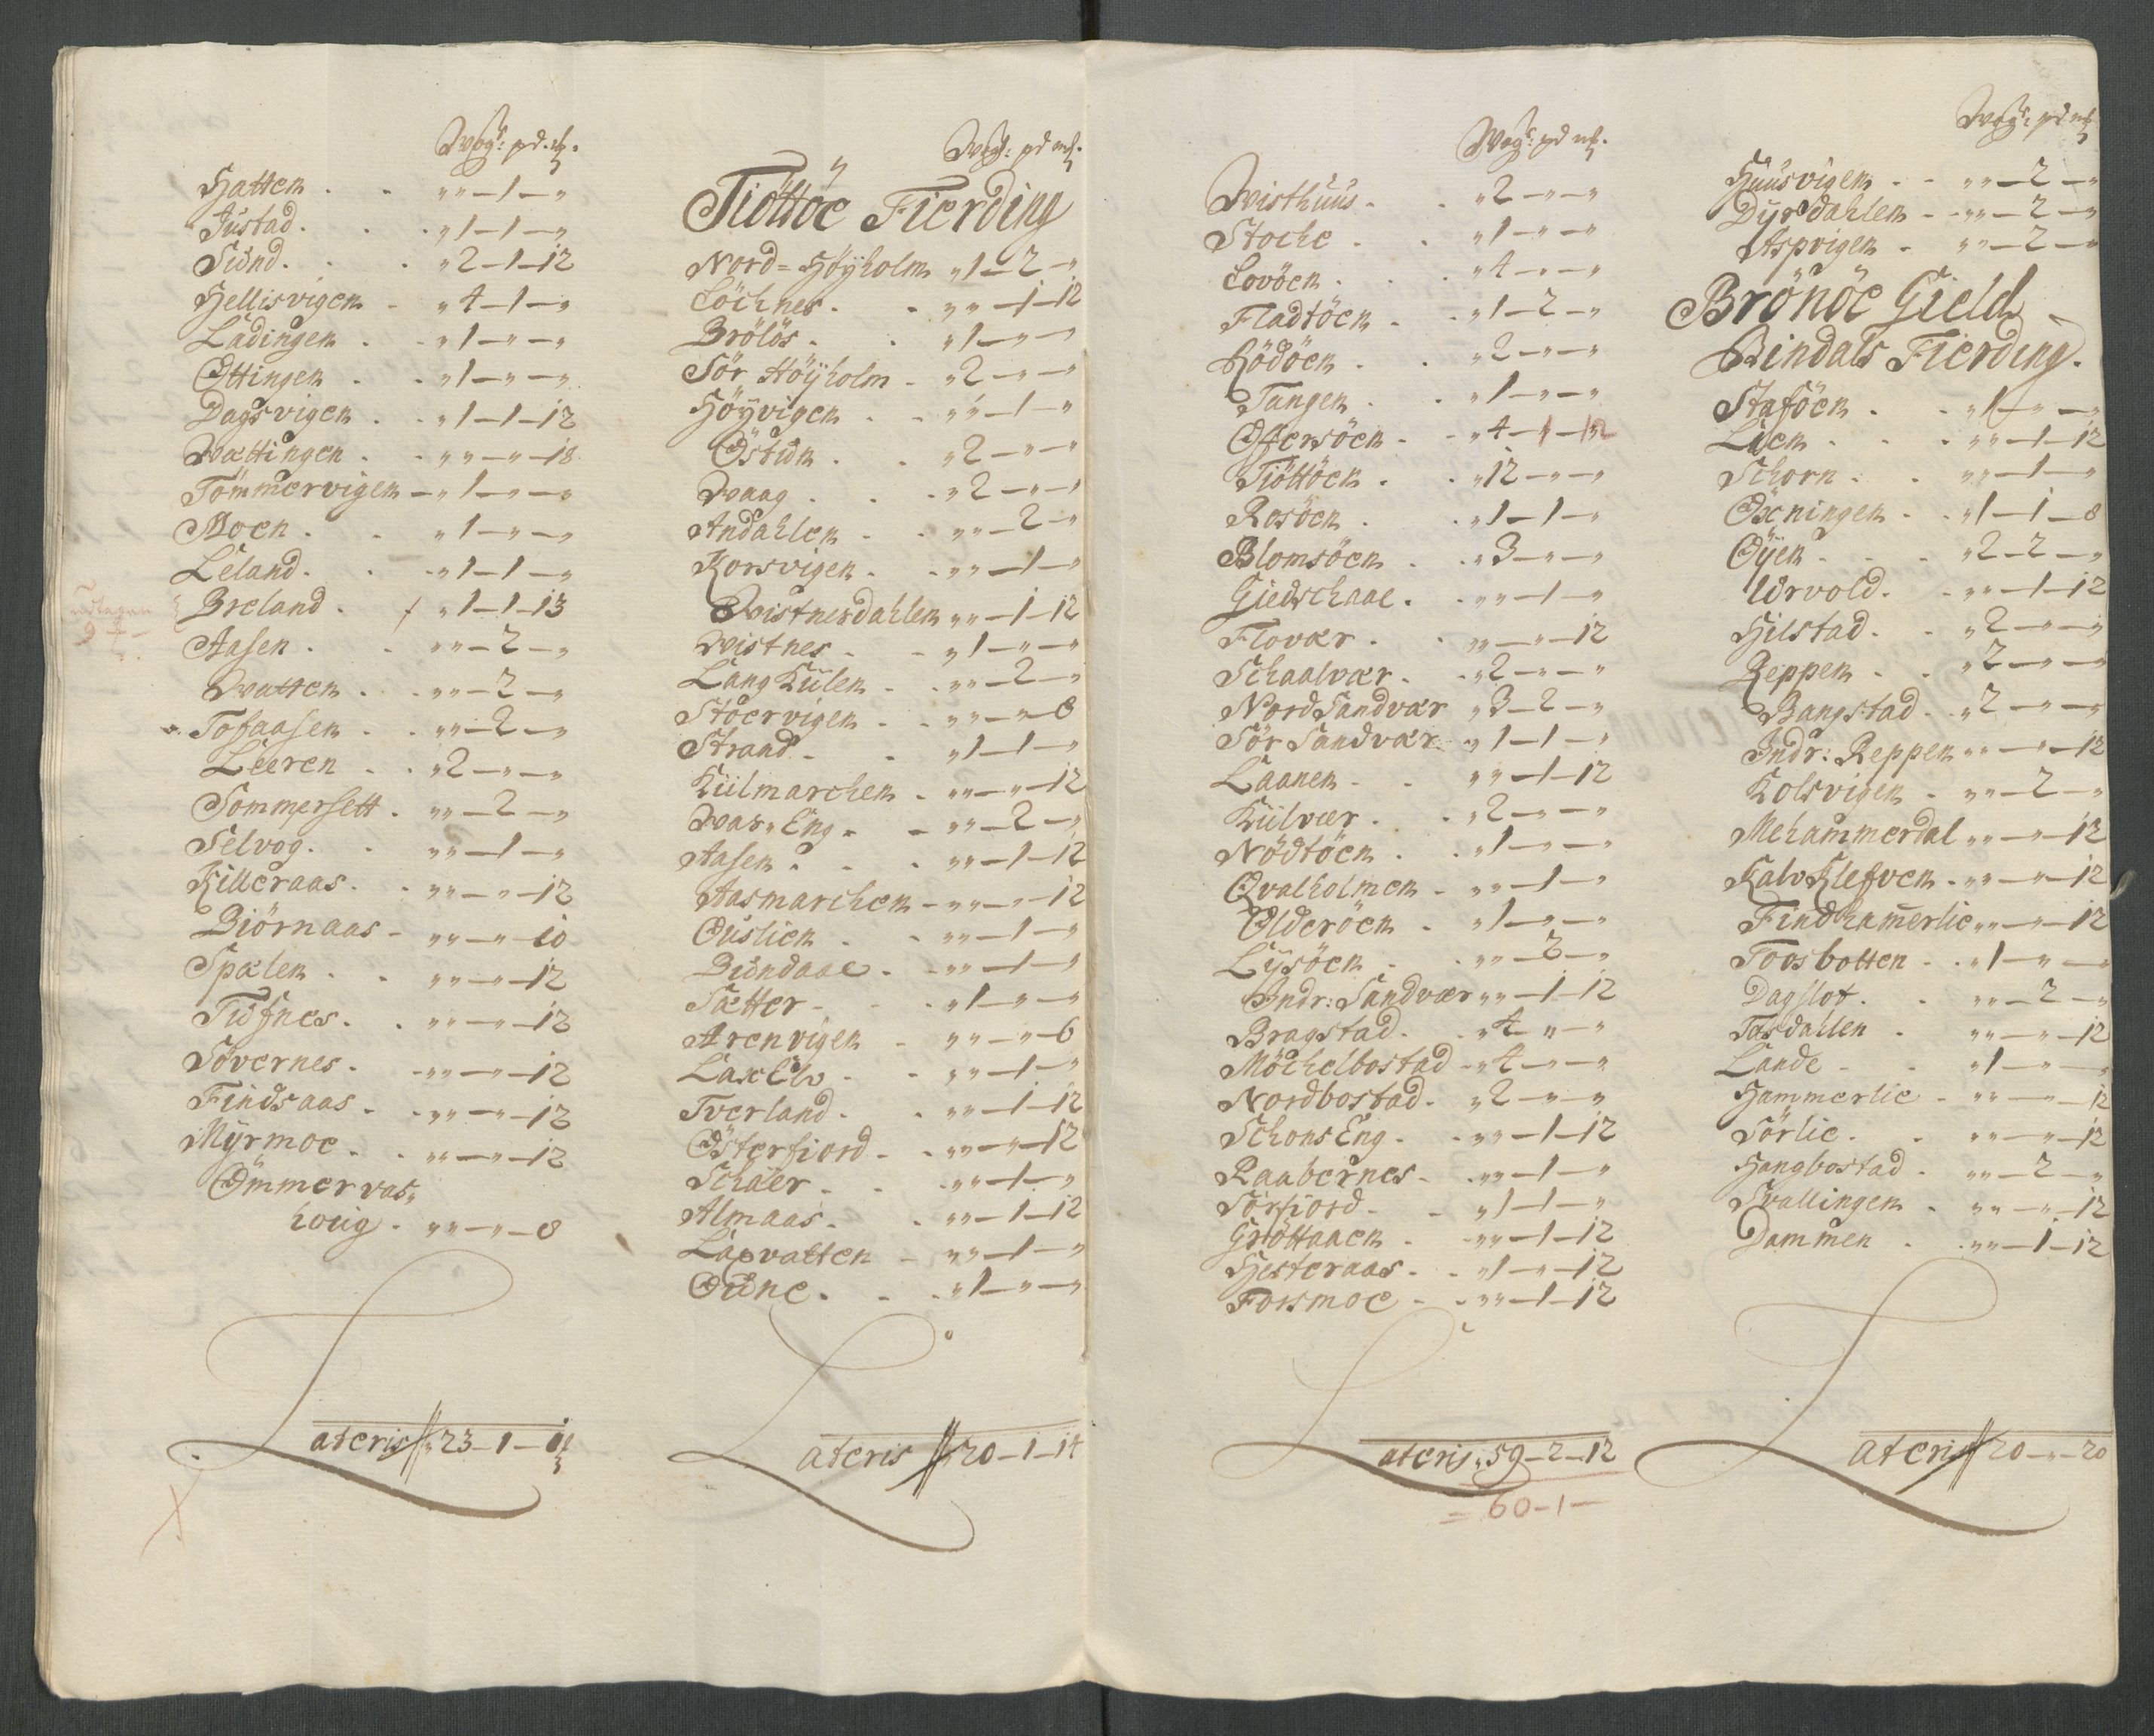 Wogr: pd. mk.
Hatten . . „ „ — 1 — „
Justad . . „ 1 — 1 — „
Siönd . . „ 2 — 1 — 12
Hellisvigen - „ 4 — 1 — „
Ladingen . . „ 1 — „ — „
Ottingen . . „ 1 — „ — „
Dagsvigen . . „ 1 — 1 — 12
Wættingen . . „ „ — „ — 18
Tömmervigen — „ 1 — „ — „
Moen . . „ 1 — „ — „
Leland . . „ 1 — 1 — „
Breland . „ 1 — 1 — 13
Aasen . . „ „ — 2 — „
Watten . . „ „ — 2 — „
Tofaasen . . „ „ — 2 — „
Leeren . . „ 2 — „ — „
Sommersett . „ „ — 2 — „
Selvog . . „ „ — 1 — „
Killeraas . . „ „ — „ — 12
Biörnaas - „ „ — „ — 10
Spælen . . „ „ — „ — 12
Tiufnes . . „ „ — „ — 12
Sövernes . . „ „ — „ — 12
Findsaas . . „ „ — „ — 12
Myrmoe . . „ „ — „ — 12
Ömmervas„
houg . „ „ — „ — 8
Lateris „ 23 — 1 —
Wogr: pd mk.
Tiöttöe Fierding
Nord= Höyholm „ 1 — 2 — „
Löchnes . . „ „ — 1 — 12
Brölös . . „ 1 — „ — „
Sör Höyholm - „ 2 — „ — „
Höyvigen . . „ „ — 1 — „
Östun . . „ 2 — „ — „
Waag . . . „ 2 — „ — „
Andahlen . . „ „ — 2 — „
Korsvigen . . „ „ — 1 — „
Wistnesdahlen „ „ — 1 — 12
Wistnes . - „ 1 — „ — „
Lang Kulen . . „ „ — 2 — „
Stöervigen . . „ „ — „ — 8
Strand . . „ 1 — 1 — „
Kiilmarchen . „ „ — „ — 12
War„ Eng . - „ „ — 2 — „
Aasen . . . „ „ — 1 — 12
Aasmarchen - „ „ — „ — 12
Ouslien . . „ „ — 1 — „
Biöndaae . - „ „ — 1 — „
Sætter . . „ 1 — „ — „
Arenvigen - „ „ — „ — 6
Lax Elv . . „ „ — 1 — „
Tverland . . „ „ — 1 — 12
Österfiord . . „ „ — „ — 12
Schäer . . „ „ — 1 — „
Almaas . . „ „ — 1 — 12
Lapvatten - „ „ — 1 — „
Oune . . . „ 1 — „ — „
Lateris „ 20 — 1 — 14
Wogr: pd mk.
Wisthuus . . „ 2 — „ — „
Stoche . . „ 1 — „ — „
Lovöen . . „ 4 — „ — „
Fladtöen . . „ 1 — 2 — „
Rödöen . . „ 2 — „ — „
Tangen . . „ 1 — „ — „
Offersöen . - „ 4 — 1 — 12
Tiöttöen . . „ 12 — „ — „
Rosöen . . „ 1 — 1 — „
Blomsöen . . „ 3 — „ — „
Giedschaae . . „ „ — 1 — „
Flovær . . „ „ — „ — 12
Schaalvær . . „ 2 — „ — „
Nord Sandvær „ 3 — 2 — „
Sör Sandvær „ 1 — 1 — „
Laanen . . „ „ — 1 — 12
Kiilvær . . „ 2 — „ — „
Nödtöen . . „ 1 — „ — „
Qvalholmen - „ „ — 1 — „
Olderöen . „ 1 — „ — „
Lysöen . . „ „ — 2 — „
Indr: Sandvær „ „ — 1 — 12
Bragstad . . „ 4 — „ — „
Möchelbostad - „ 4 — „ — „
Nordbostad . „ 2 — „ — „
Schons Eng . . „ „ — 1 — 12
Raabernes . . „ „ — 1 — „
Sörfiord . - „ 1 — 1 — „
Gröttaaen . . „ „ — 1 — 12
Hesteraas . . „ 1 — „ — 12
Forsmoe . . „ „ — 1 — 12
Lateris „ 59 — 2 — 12
= 60 — 1 —
Wogr: pd mk
Huusvigen . . „ „ — 2 — „
Dyrdahlen . . „ „ — 2 — „
Aspvigen . „ „ — 2 — „
Brönöe Gield
Bindals Fierding.
Staföen . . „ 1 — „ — „
Lien . . . „ „ — 1 — 12
Schorn . . „ „ — 1 — „
Öxningen . . „ 1 — 1 — 8
Öyen . . . „ 2 — 2 — „
Urvold . . „ „ — 1 — 12
Hilstad . . „ 2 — „ — „
Reppen . . „ 2 — „ — „
Bangstad . . „ 2 — „ — „
Indr: Reppen „ „ — „ — 12
Kolsvigen . „ „ — 2 — „
Mehammerdal „ „ — „ — 12
Kalv Klefven . „ „ — „ — 12
Findham̅erlie „ „ — „ — 12
Toosbotten . . „ 1 — „ — „
Dagslot . . „ „ — 2 — „
Tosdahlen . „ „ — „ — 12
Lande . . „ 1 — „ — „
Hammerlie - „ „ — „ — 12
Sörlie . . „ „ — „ — 12
Hangbostad . „ „ — 2 — „
Svallingen . „ „ — „ — 12
Dammen . . „ „ — 1 — 12
Lateris 20 — „ — 20